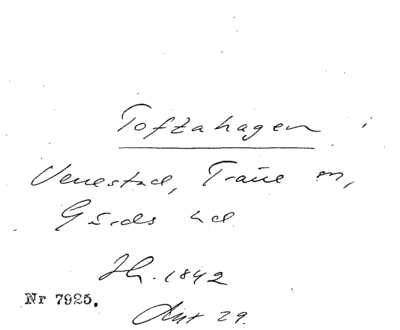 Toftahagen
Venestad, Träne sn,
Gärds hd
Jb. 1842
Nr 7925.
Akt 29.